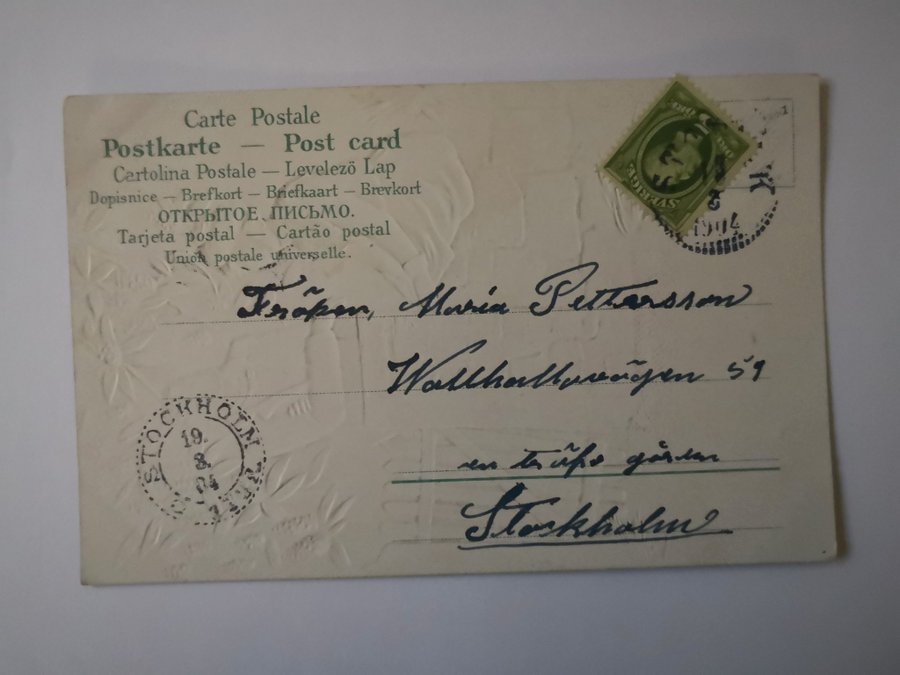 Carte Postale
Postkarte — Post card
Cartolina Postale — Levelező Lap
Dopisnice — Brefkort — Briefkaart — Brevkort
ОТКРЫТОЕ ПИСЬМО.
Tarjeta postal — Cartão postal
Union postale universelle.
SVERIGE
1904
Fröken, Maria Pettersson
Wallhallavägen 59
en trüps gåren
Stockholm
STOCKHOLM
19.
3.
04